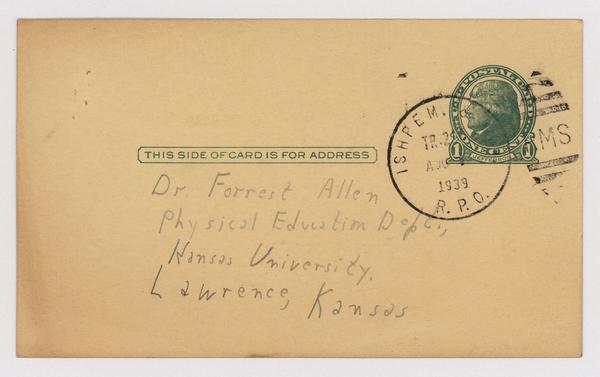 U.S. POSTAL CARD
1 ONE CENT 1
JEFFERSON
ISHPEM.
TR.2
AUG
1939
R.P.O.
RMS
THIS SIDE OF CARD IS FOR ADDRESS
Dr. Forrest Allen
Physical Education Dept.,
Kansas University.
Lawrence, Kansas